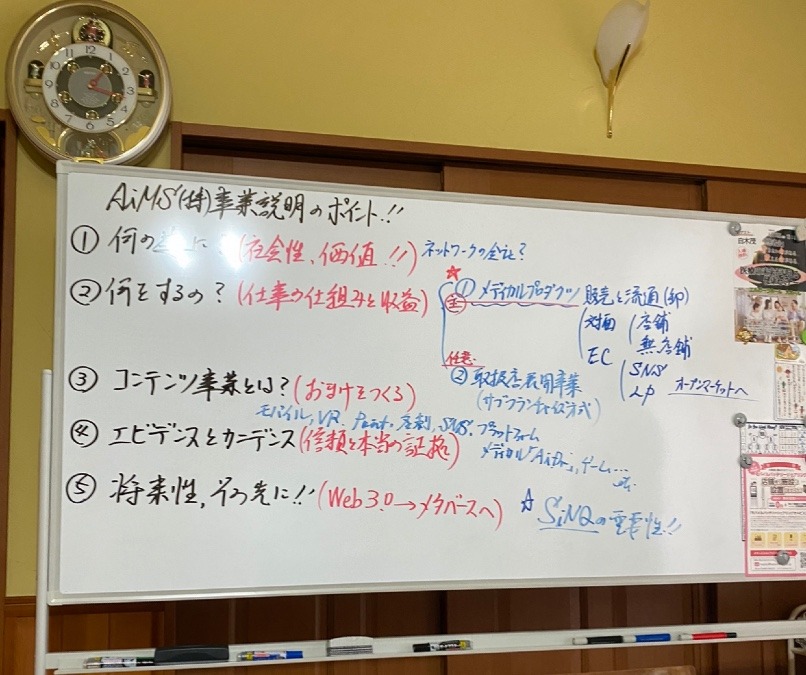 AiMS(株)事業説明のポイント!!
① 何の に?(社会性、価値!!) ネットワークの会社?
② 何をするの?(仕事の仕組みと収益)
① メディカルプロダクツ 販売と流通(卸)
対面 店舗
無店舗
EC SNS
LP オープンマーケットへ
任意.
② 取扱店展開事業
(サブフランチャイズ方式)
③ コンテンツ事業とは?(おまけをつくる)
モバイル, VR, 広告, SNS, プラットフォーム
メディカル「AiDr.」, ゲーム…
etc.
④ エビデンスとカニデンス(信頼と本当の証拠)
⑤ 将来性, その先に!!(Web3.0→メタバースへ)
☆ SiNQの重要性!!
白木茂